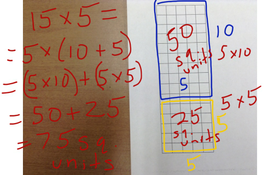 15 x 5 =
= 5 x (10 + 5)
= (5 x 10) + (5 x 5)
= 50 + 25
= 75 sq
units
50
sq
units
5
10
5 x 10
25
sq
units
5 x 5
5
5